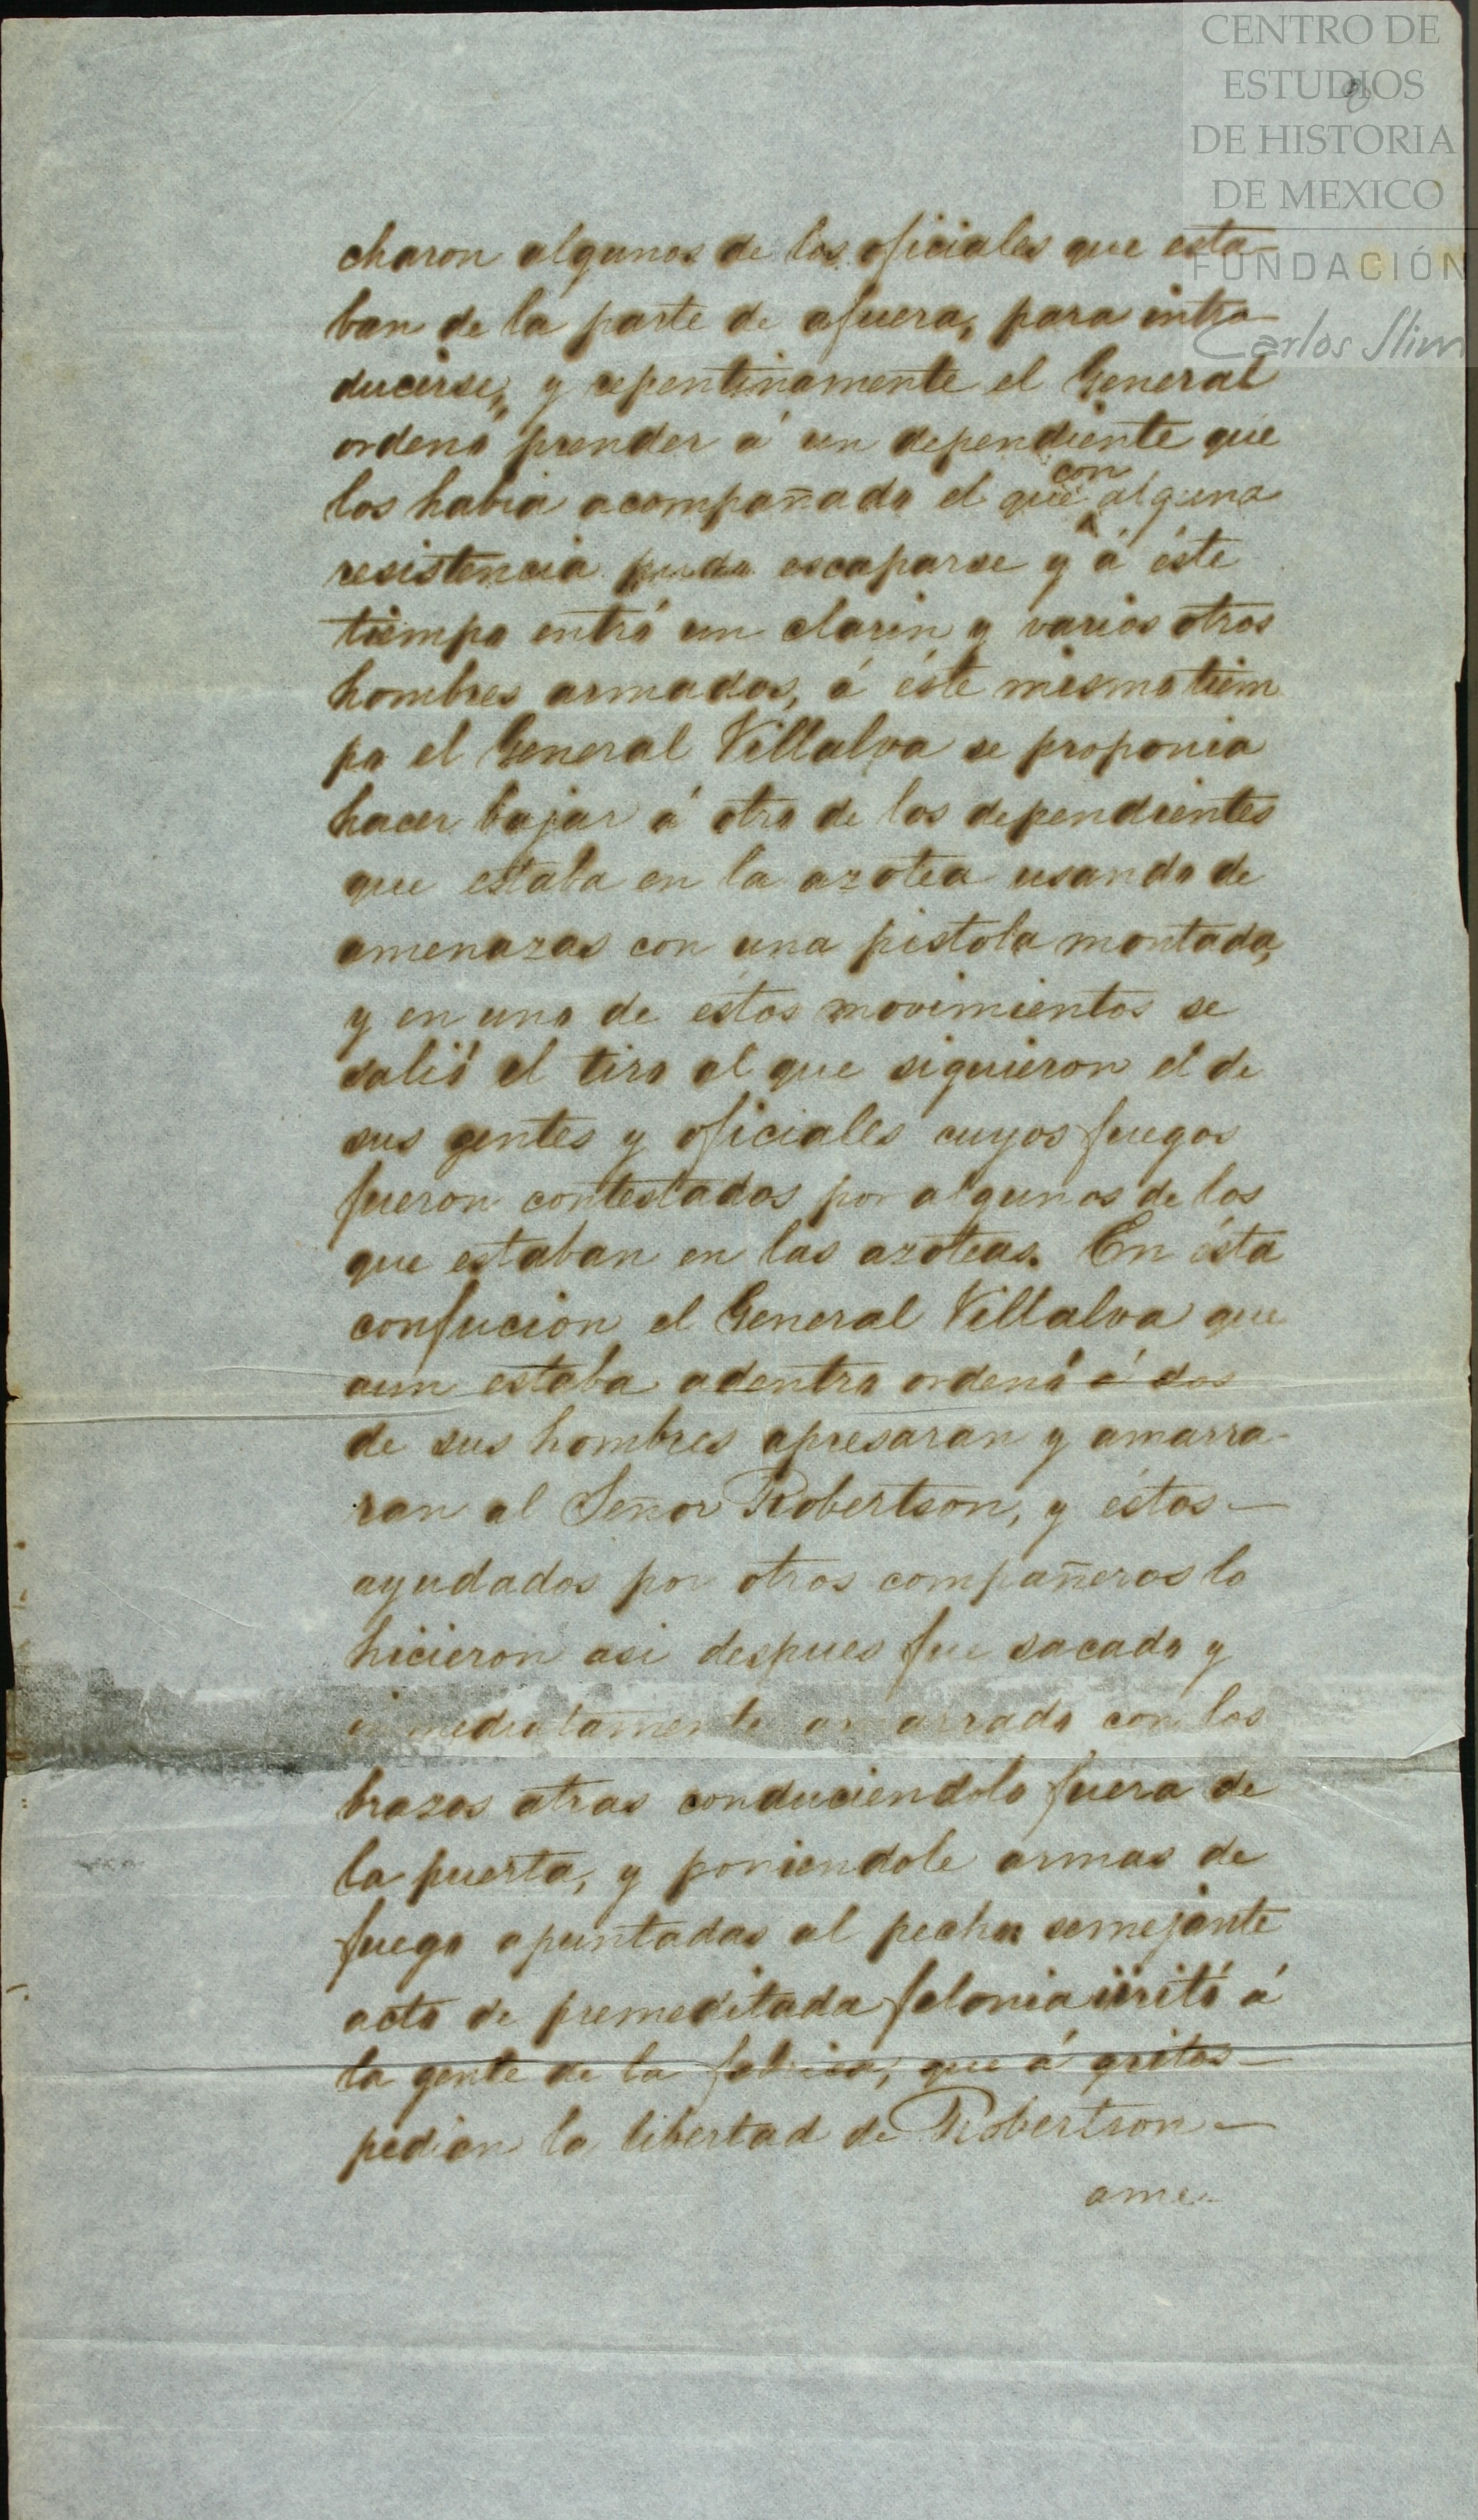 CENTRO DE
ESTUDIOS
DE HISTORIA
DE MEXICO
FUNDACIÓN
Carlos Slim
charon algunos de los oficiales que esta-
ban de la parte de afuera, para intro-
ducirse, y repentinamente el General
ordenó prender á un dependiente que
los habia acompañado el que con alguna
resistencia pudo escaparse y á éste
tiempo entró un clarin y varios otros
hombres armados, á éste mismo tiem
po el General Villalva se proponia
hacer bajar á otro de los dependientes
que estaba en la azotea usando de
amenazas con una pistola montada,
y en uno de estos movimientos se
salió el tiro al que siguieron el de
sus gentes y oficiales cuyos fuegos
fueron contestados por algunos de los
que estaban en las azoteas. En ésta
confucion el General Villalva que
aun estaba adentro ordenó á dos
de sus hombres apresaran y amarra-
ran al Señor Robertson, y éstos
ayudados por otros compañeros lo
hicieron asi despues fue sacado y
inmediatamente amarrado con los
brazos atras conduciendolo fuera de
la puerta, y poniendole armas de
fuego apuntadas al pecho semejante
acto de premeditada felonia irritó á
la gente de la fabrica, que á gritos
pedian la libertad de Robertson
ame-